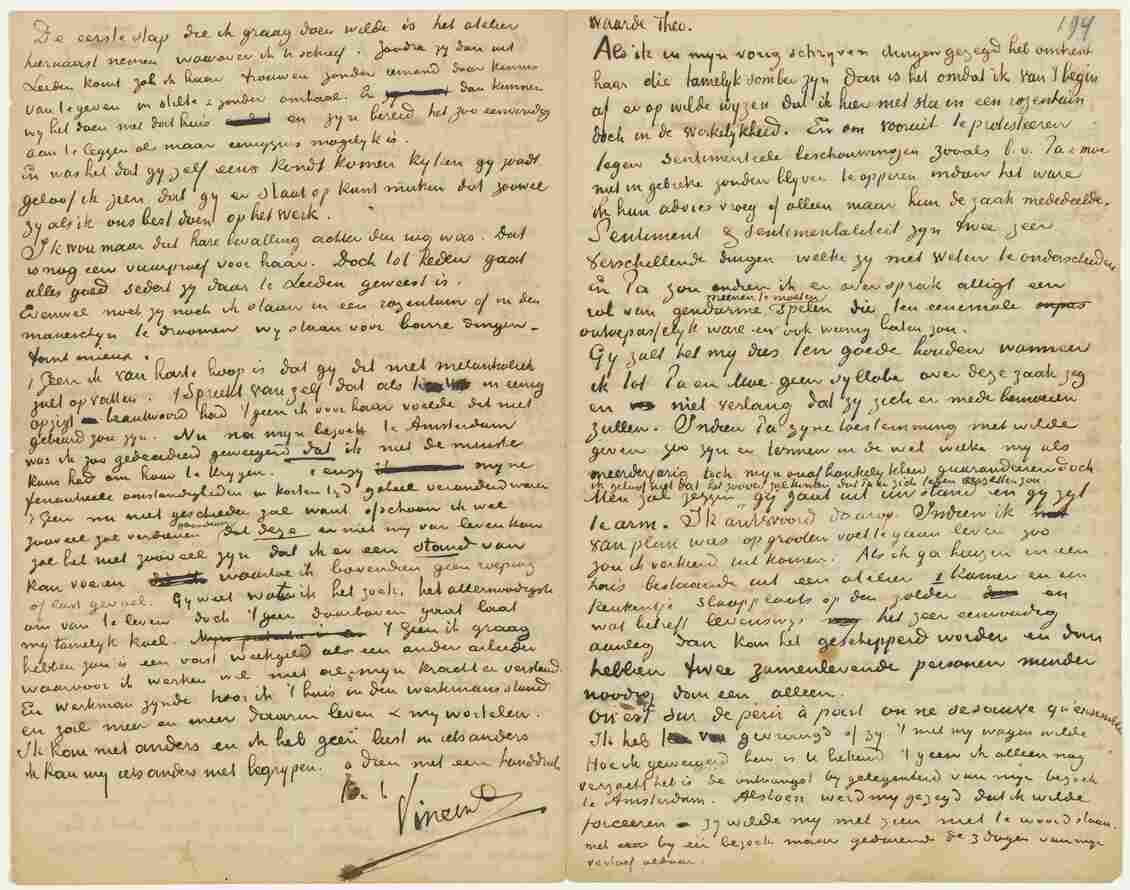 De eerste stap die ik graag doen wilde is het atelier
hiernaast nemen waarover ik U schreef. Zoodra zij dan uit
Leiden komt zal ik haar trouwen zonder iemand daar kennis
van te geven in stilte & zonder omhaal. En dan kunnen
wij het doen met dat huis en zijn bereid het zoo eenvoudig
aan te leggen als maar eenigzins mogelijk is.
En was het dat gij zelf eens kondt komen kijken gij zoudt
geloof ik zien dat gij er staat op kunt maken dat zoowel
zij als ik ons best doen op het werk.
Ik wou maar dat hare bevalling achter den rug was. Dat
is nog een vuurproef voor haar. Doch tot heden gaat
alles goed sedert zij daar te Leiden geweest is.
Evenwel noch zij noch ik staan in een rozentuin of in den
maneschijn te droomen wij staan voor barre dingen –
tant mieux.
't Geen ik van harte hoop is dat gij dit niet melankoliek
zult opvatten. 't Spreekt vanzelf dat als in eenig
opzigt beantwoord had 't geen ik voor haar voelde dit niet
gebeurd zou zijn. Nu na mijn bezoek te Amsterdam
was ik zoo gedecideerd geweigerd dat ik niet de minste
kans had om haar te krijgen. mijne
financieele omstandigheden in korten tijd geheel veranderd waren
't Geen nu niet geschieden zal want ofschoon ik wel
zooveel zal verdienen dat deze vrouw en met mij van leven kan
zoo het niet zooveel zijn dat ik er een stand van
kan voeren waartoe ik bovendien geen roeping
of lust gevoel. Gij weet wat ik zoek, het allernoodigste
om van te leven doch 't geen daarboven gaat laat
mij tamelijk koel. 't Geen ik graag
hebben zou is een vast weekgeld als een ander arbeider
waarvoor ik werken wil met al mijn kracht en verstand.
En werkman zijnde hoor ik 't huis in den werkmansstand
en zal meer en meer daarin leven & mij wortelen.
Ik kan niet anders en ik heb geen lust in iets anders
ik kan mij iets anders niet begrijpen. adieu met een handdruk
t. à t.
Vincent
194
Waarde Theo.
Als ik in mijn vorig schrijven dingen gezegd heb omtrent
haar die tamelijk somber zijn dan is het omdat ik van 't begin
af er op wilde wijzen dat ik hier niet sta in een rozentuin
doch in de werkelijkheid. En om vooruit te protesteeren
tegen sentimenteele beschouwingen zooals b.v. Pa & Moe
niet in gebreke zouden blijven te opperen indien het ware
ik hun advies vroeg of alleen maar hun de zaak mededeelde.
Sentiment & sentimentaliteit zijn twee zeer
verschillende dingen welke zij niet weten te onderscheiden
en Pa zou indien ik er over sprak alligt een
rol van gendarme meenen te moeten spelen die ten eenemale
ontoepasselijk ware en ook weinig baten zou.
Gij zult het mij dus ten goede houden wanneer
ik tot Pa en Moe geen syllabe over deze zaak zeg
en niet verlang dat zij zich er mede bemoeien
zullen. Indien Pa zijne toestemming niet wilde
geven zoo zijn er termen in de wet welke mij als
meerderjarig toch mijn onafhankelijkheid guarandeeren doch
ik geloof niet dat het zoover zal komen dat Pa en zich tegen verzetten zou
Men zal zeggen gij gaat uit uw stand en gij zijt
te arm. Ik antwoord daarop. Indien ik
van plan was op grooten voet te gaan leven zoo
zou ik verkeerd uitkomen. Als ik ga huizen in een
huis bestaande uit een atelier 1 kamer en een
keukentje slaapplaats op den zolder en
wat betreft levenswijs het zeer eenvoudig
aanleg dan kan het gescheppend worden en dan
hebben twee zamenlevende personen minder
noodig dan een alleen.
On est sur de périr à part on ne se sauve qu'ensemble
Ik heb gevraagd of zij 't met mij wagen wilde
Hoe ik geweigerd ben is U bekend 't geen ik alleen nog
verzocht het is de ontvangst bij gelegenheid van mijn bezoek
te Amsterdam. Alstoen werd mij gezegd dat ik wilde
forceeren – zij wilde mij niet zien niet te woord staan.
niet bij één bezoek maar gedurende de 3 dagen van mijn
verblijf aldaar.